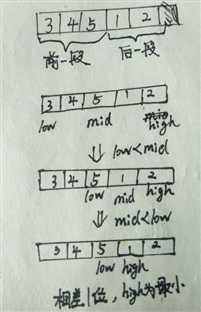 3 4 5 1 2
前一段 后一段
3 4 5 1 2
low mid high
low<mid
3 4 5 1 2
low mid high
mid<low
3 4 5 1 2
low high
相差1位，high为最小